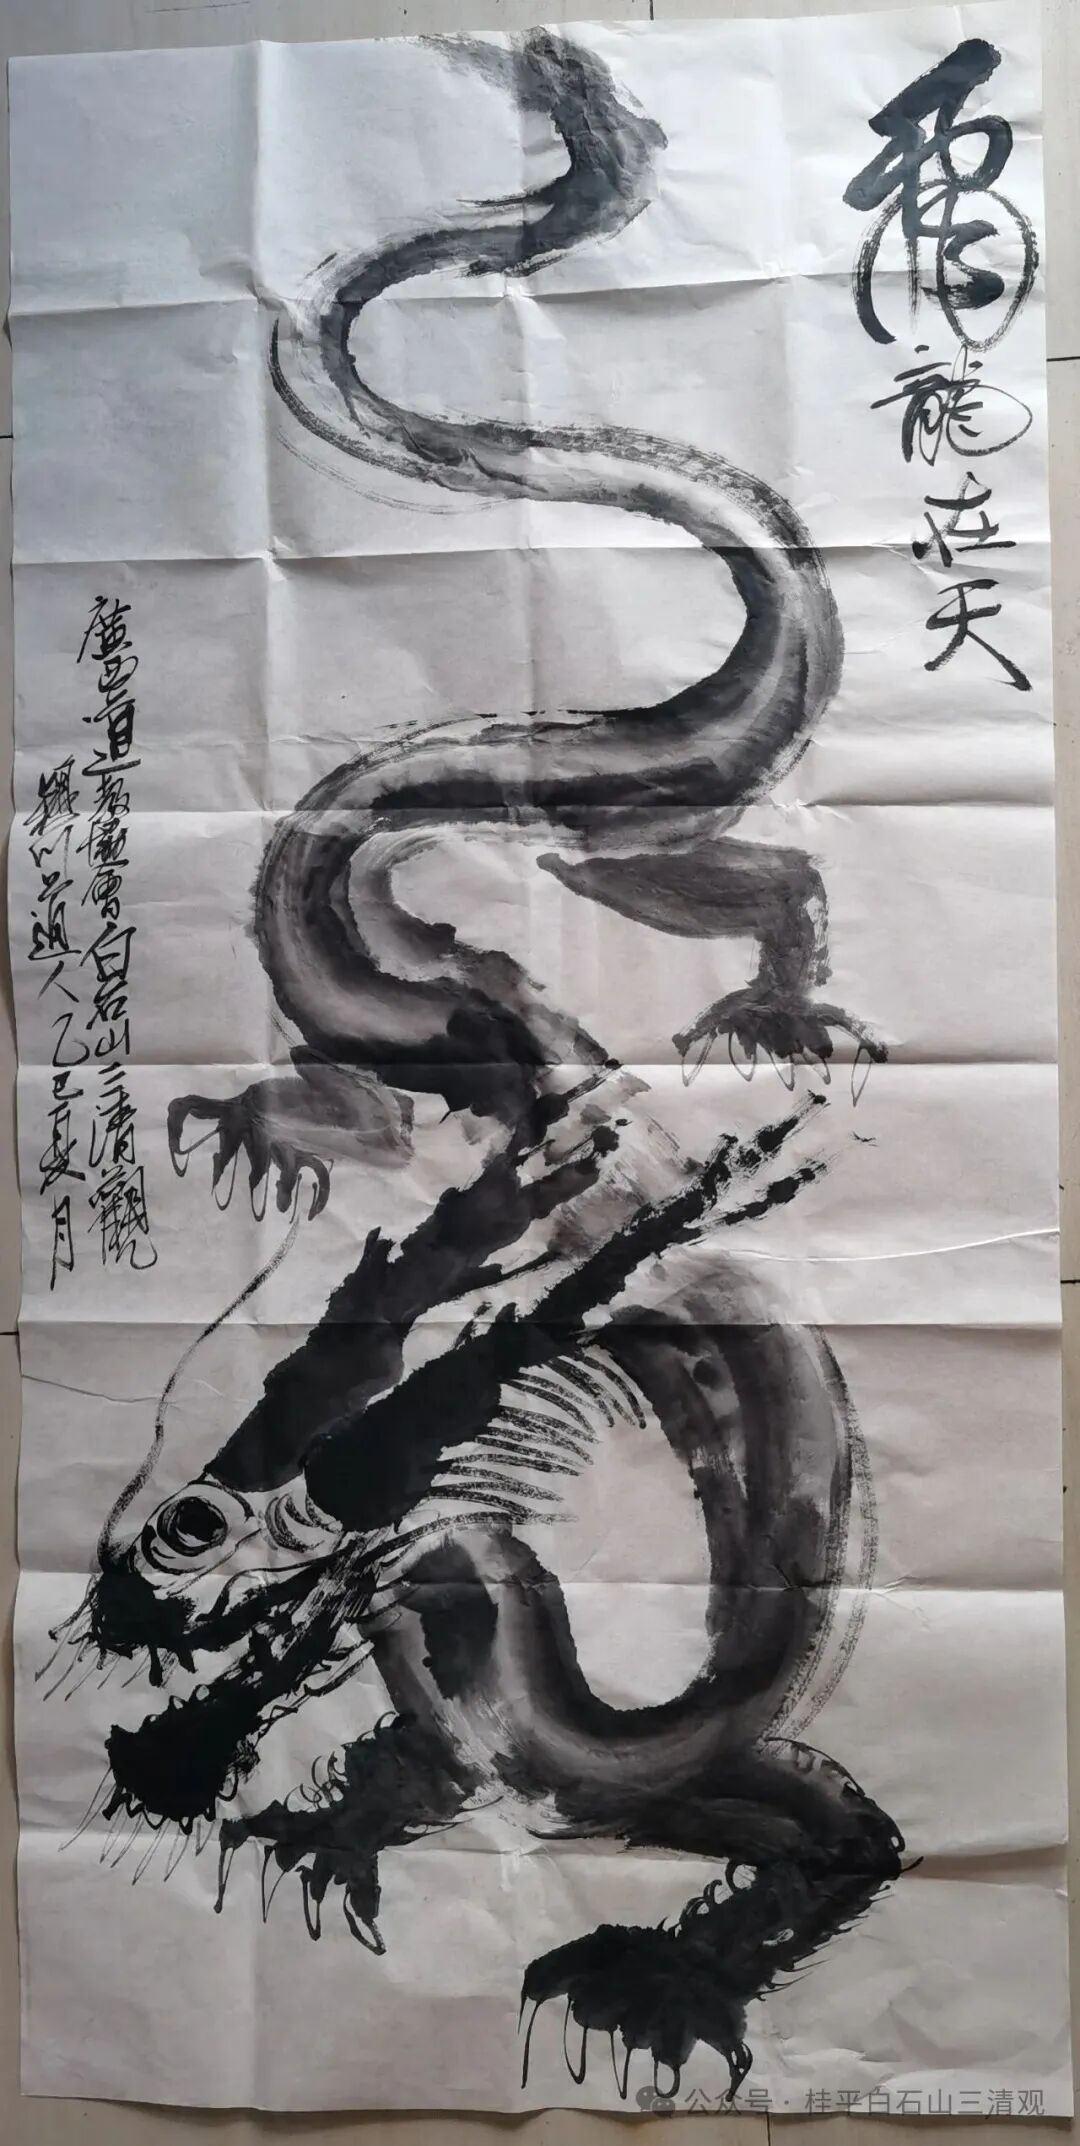 飛龍在天
廣西道教協會白石山三清觀
川道人乙巳夏月
公众号 · 桂平白石山三清观